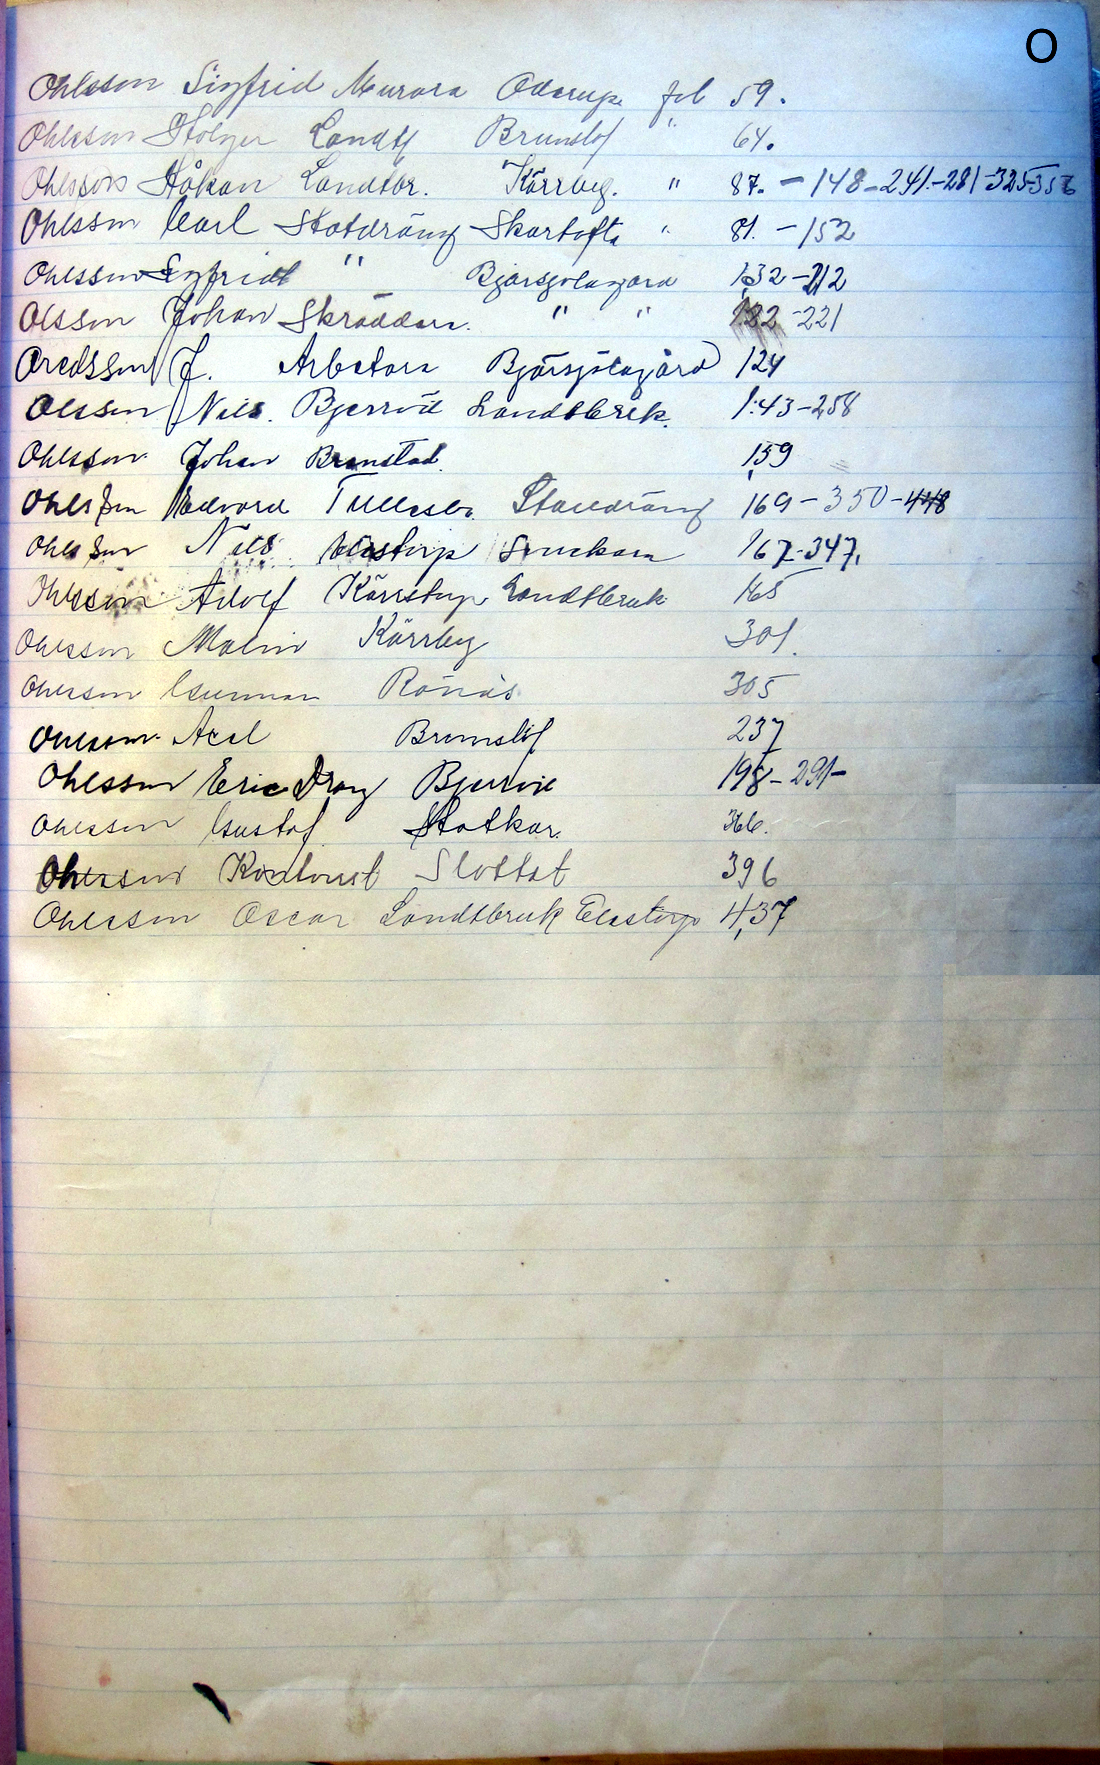 O
Ohlsson Sigfrid Murare Oderup fol 59.
Ohlsson Holger Landtb Brunslöf " 64.
Ohlsson Håkan Landtbr. Kärrby. " 87. - 148 - 241 - 281 - 325 - 356
Ohlsson Carl Statdräng Skartofta " 81. - 152
Ohlsson Sigfridt " Bjärsjölagård 132 - 212
Olsson Johan Skräddare. " " 132 - 221
Oredsson J. Arbetare Bjärsjölagård 124
Olsson Nils. Bjerröd Landtbruk. 143 - 258
Ohlsson Johan Branstad. 159
Ohlsson Edvard Tullesbo. Stalldräng 169 - 350 - 448
Ohlsson Nils Elestorp 167 - 347.
Ohlsson Adolf Kärrstorp Landtbruk 165
Ohlsson Malin Kärrby 301.
Ohlsson Gunnar Rönås 305
Ohlsson Axel Brunslöf 237
Ohlsson Eric Dräng Bjerröd 198 - 291 -
Ohlsson Gustaf Statkar. 366.
Ohlsson Kontorist Slottet 396
Ohlsson Oscar Landtbruk Elestorp 437